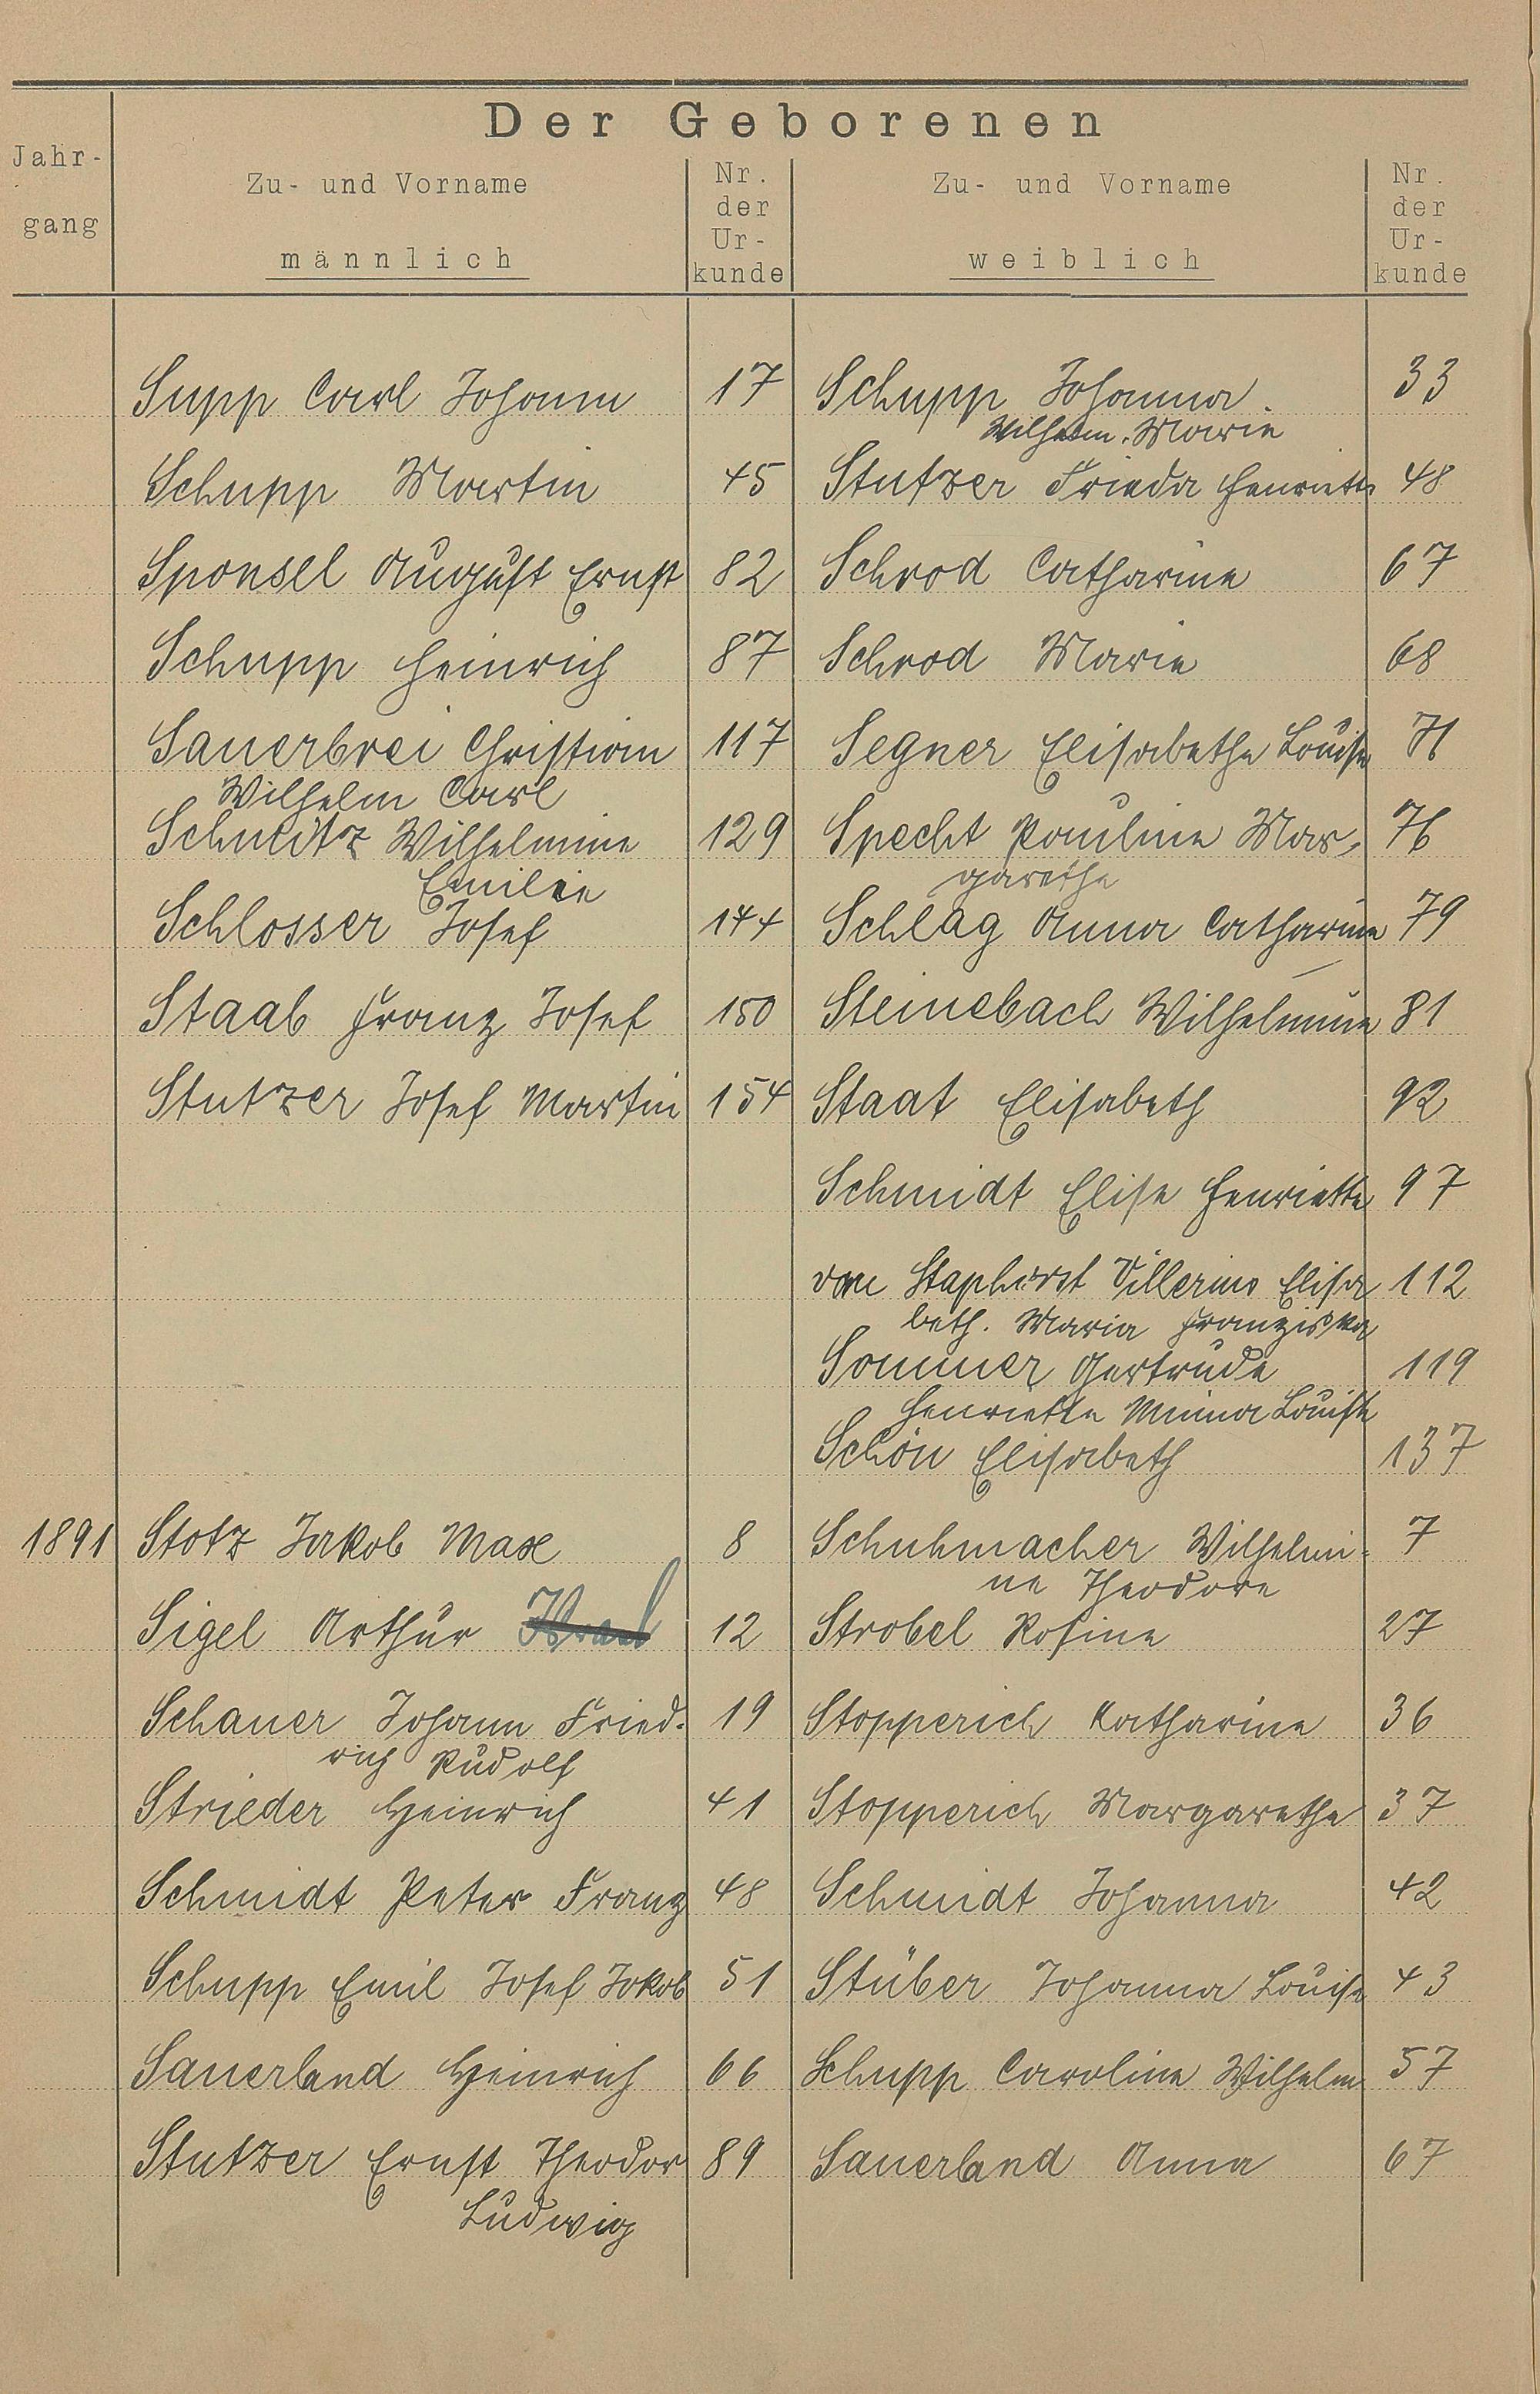 Der Geborenen
Jahr-
gang
Zu- und Vorname
männlich
Nr.
der
Ur-
kunde
Zu- und Vorname
weiblich
Nr.
der
Ur-
kunde
Supp Carl Johann 17 Schupp Johanna 33
Wilhelm. Marie
Schupp Martin 45 Stutzer Frieda Henriette 48
Sponsel August Ernst 82 Schrod Catharine 67
Schupp Heinrich 87 Schrod Marie 68
Sauerbrei Christian 117 Segner Elisabethe Louise 71
Wilhelm Carl
Schmitz Wilhelmine 129 Specht Pauline Mar- 76
Emilie garethe
Schlosser Josef 144 Schlag Anna Catharine 79
Staab Franz Josef 150 Steinebach Wilhelmine 81
Stutzer Josef Martin 154 Staat Elisabeth 92
Schmidt Elise Henriette 97
von Staphorst Villerino Elisa 112
beth. Maria Franziska
Sommer Gertrude 119
Henriette Minna Louise
Schön Elisabeth 137
1891 Stotz Jakob Max 8 Schuhmacher Wilhelmi- 7
ne Theodore
Sigel Arthur Israel 12 Strobel Rosine 27
Schauer Johann Fried- 19 Stopperich Katharine 36
rich Rudolf
Strieder Heinrich 41 Stopperich Margarethe 37
Schmidt Peter Franz 48 Schmidt Johanna 42
Schupp Emil Josef Jakob 51 Stüber Johanna Louise 43
Sauerland Heinrich 66 Schupp Caroline Wilhelm 57
Stutzer Ernst Theodor 89 Sauerland Anna 67
Ludwig